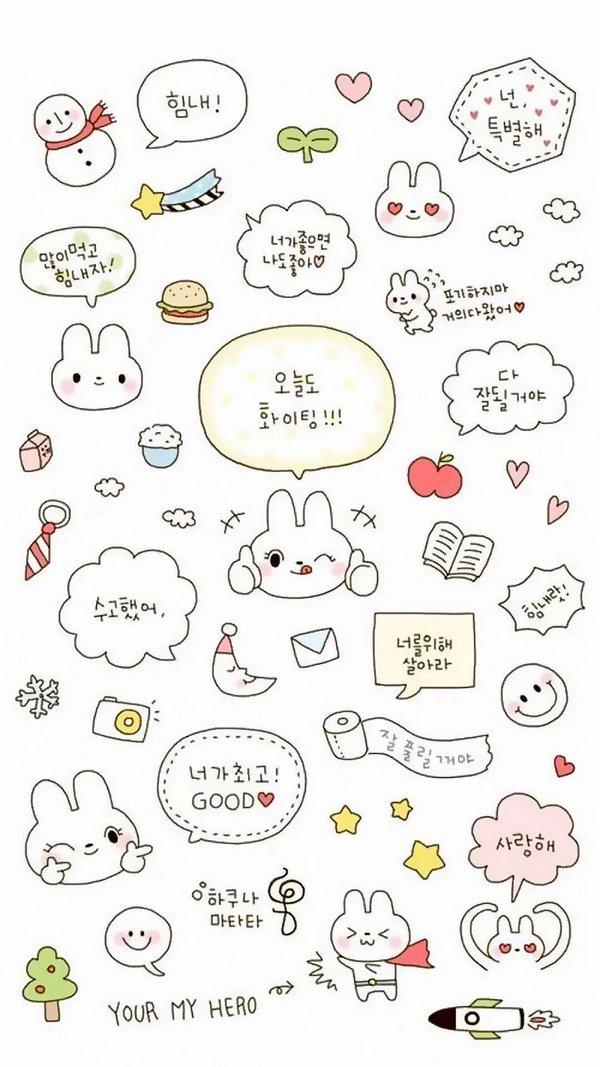 힘내!
넌,
특별해
많이먹고
힘내자!
너가좋으면
나도좋아♡
포기하지마
거의다왔어♥
오늘도
화이팅!!!
다
잘될거야
수고했어,
힘내랏!
너를위해
살아라
잘 풀릴거야
너가최고!
GOOD♥
사랑해
하쿠나
마타타
YOUR MY HERO